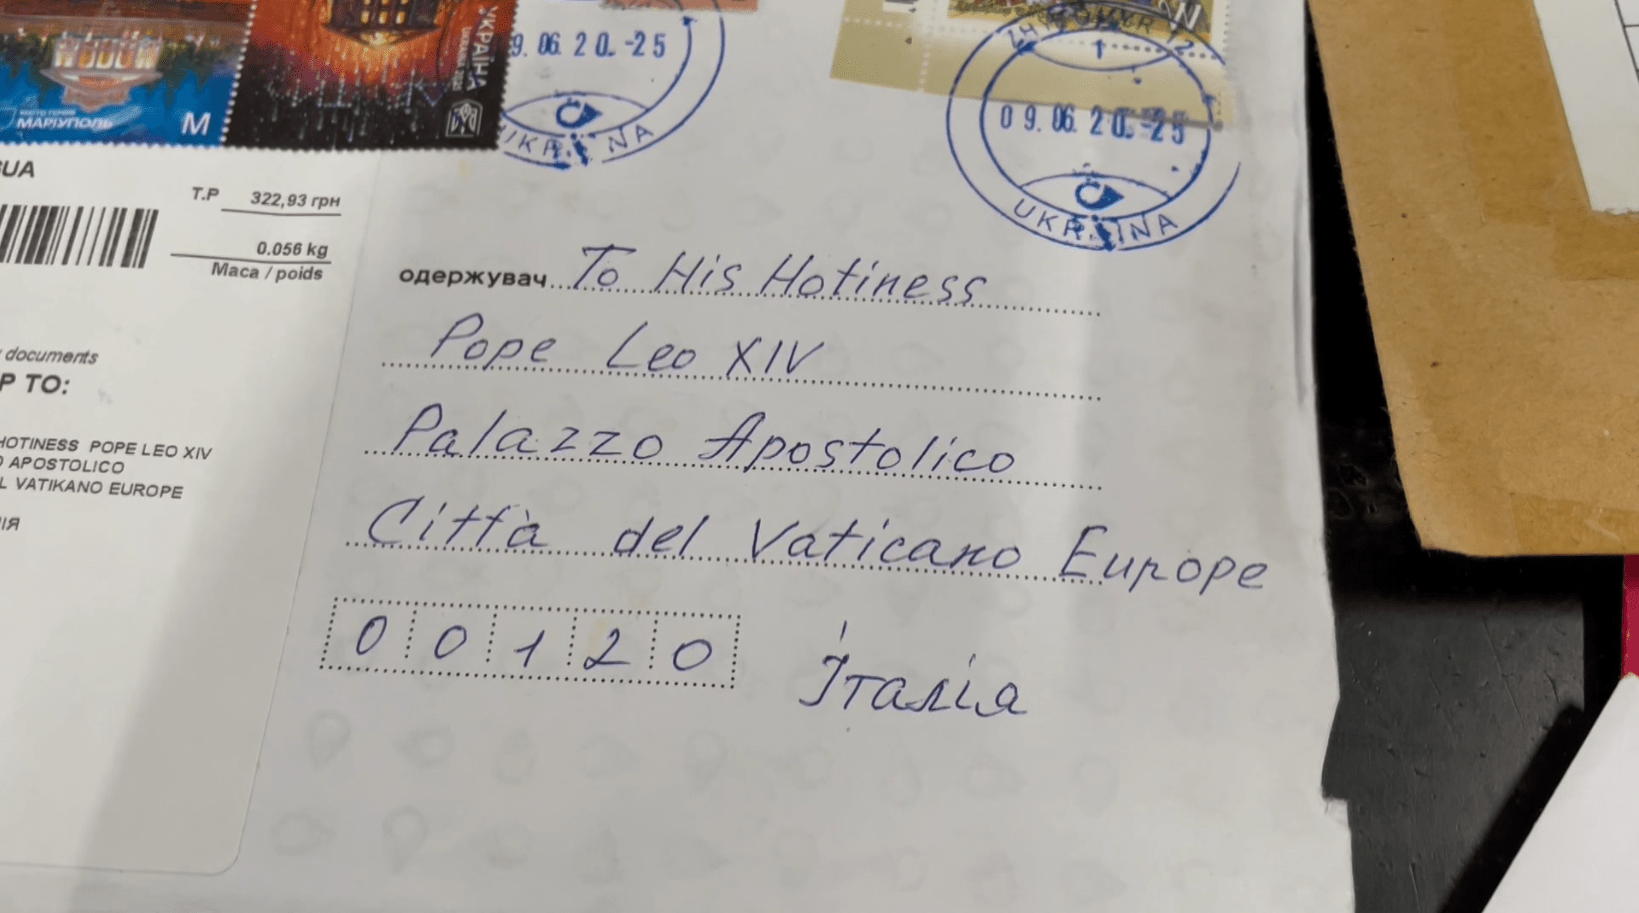 УКРАЇНА
МІСТО ГЕРОЇВ
МАРІУПОЛЬ M
9. 06. 2 0. -25
UKRAINA
0 9. 06. 2 0. -25
UKRAINA
UA
Т.Р 322,93 грн
0.056 kg
Маса / poids
documents
P TO:
HOTINESS POPE LEO XIV
O APOSTOLICO
L VATIKANO EUROPE
ІЯ
одержувач To His Hotiness
Pope Leo XIV
Palazzo Apostolico
Città del Vaticano Europe
0 0 1 2 0
Італія